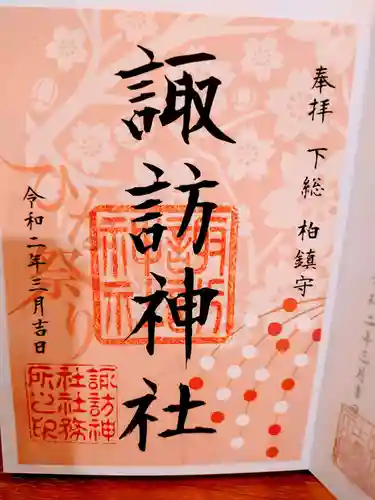 奉拝 下総 柏鎮守
諏訪神社
ひな祭り
令和二年三月吉日
諏訪神社
諏訪神
社社務
所之印